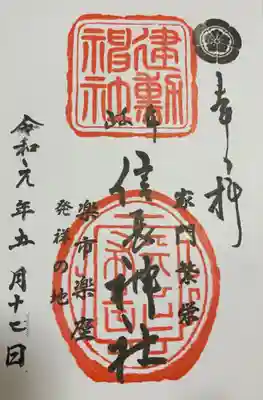 奉拝
建勲
神社
家門繁栄
岐阜
信長神社
楽市楽座
発祥の地
令和元年五月十七日